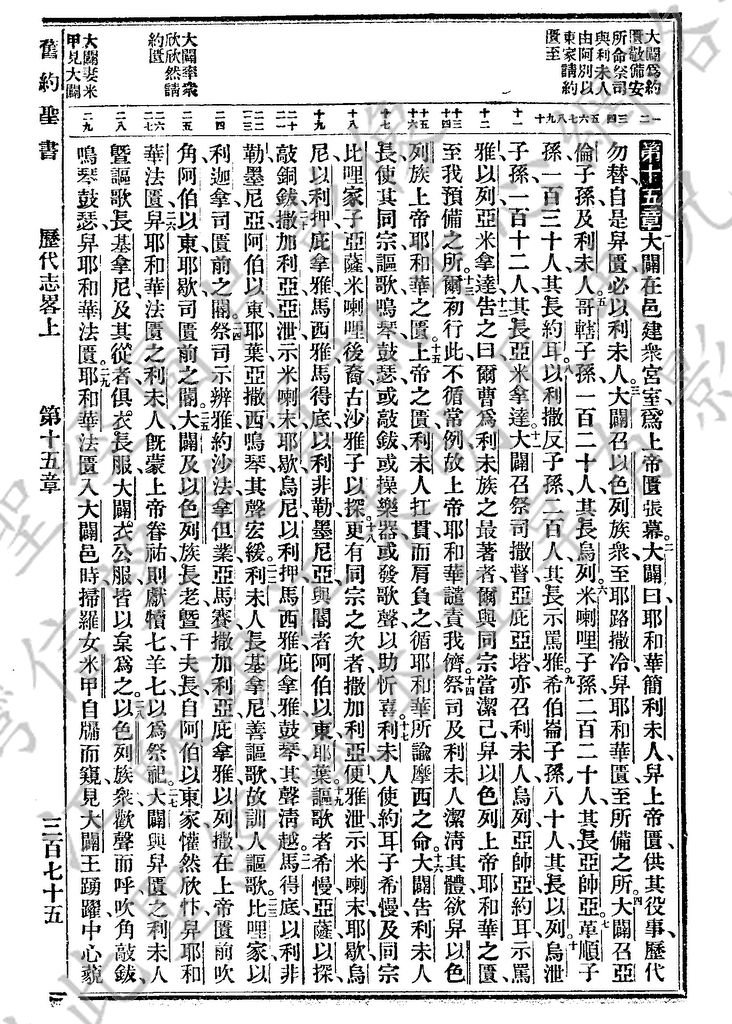 大闢爲約
匱敬備安
所命祭司
與利未人
由阿別以
東家請約
匱至
大闢率衆
欣欣然請
約匱
大闢妻米
甲見大闢
第十五章大闢在邑建衆宮室爲上帝匱張幕大闢曰耶和華簡利未人舁上帝匱供其役事歷代
勿替自是舁匱必以利未人大闢召以色列族衆至耶路撒冷舁耶和華匱至所備之所大闢召亞
倫子孫及利未人哥轄子孫一百二十人其長烏列米喇哩子孫二百二十人其長亞帥亞革順子
孫一百三十人其長約耳以利撒反子孫二百人其長示罵雅希伯崙子孫八十人其長以列烏泄
子孫一百十二人其長亞米拿達大闢召祭司撒督亞庇亞塔亦召利未人烏列亞帥亞約耳示罵
雅以列亞米拿達告之曰爾曹爲利未族之最著者爾與同宗當潔己舁以色列上帝耶和華之匱
至我預備之所爾初行此不循常例故上帝耶和華譴責我儕祭司及利未人潔清其體欲舁以色
列族上帝耶和華之匱上帝之匱利未人扛貫而肩負之循耶和華所諭摩西之命大闢告利未人
長使其同宗謳歌鳴琴鼓瑟或敲鈸或操樂器或發歌聲以助忻喜利未人使約耳子希慢及同宗
比哩家子亞薩米喇哩後裔古沙雅子以探更有同宗之次者撒加利亞便雅泄示米喇末耶歇烏
尼以利押庇拿雅馬西雅馬得底以利非勒墨尼亞與閽者阿伯以東耶葉謳歌者希慢亞薩以探
敲銅鈸撒加利亞亞泄示米喇末耶歇烏尼以利押馬西雅庇拿雅鼓琴其聲清越馬得底以利非
勒墨尼亞阿伯以東耶葉亞撒西鳴琴其聲宏緩利未人長基拿尼善謳歌故訓人謳歌比哩家以
利迦拿司匱前之閽祭司示辨雅約沙法拿但業亞馬賽撒加利亞庇拿雅以列撒在上帝匱前吹
角阿伯以東耶歇司匱前之閽大闢及以色列族長老曁千夫長自阿伯以東家懽然欣忭舁耶和
華法匱舁耶和華法匱之利未人旣蒙上帝眷祐則獻犢七羊七以爲祭祀大闢與舁匱之利未人
曁謳歌長基拿尼及其從者俱衣長服大闢衣公服皆以枲爲之以色列族衆歡聲而呼吹角敲鈸
鳴琴鼓瑟舁耶和華法匱耶和華法匱入大闢邑時掃羅女米甲自牖而窺見大闢王踴躍中心藐
舊約聖書
歷代志畧上
第十五章
三百七十五